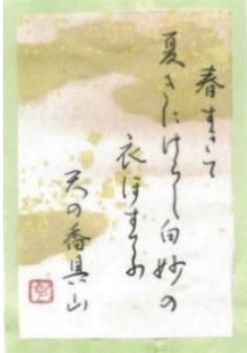 春すぎて
夏きにけらし白妙の
衣ほすてふ
天の香具山